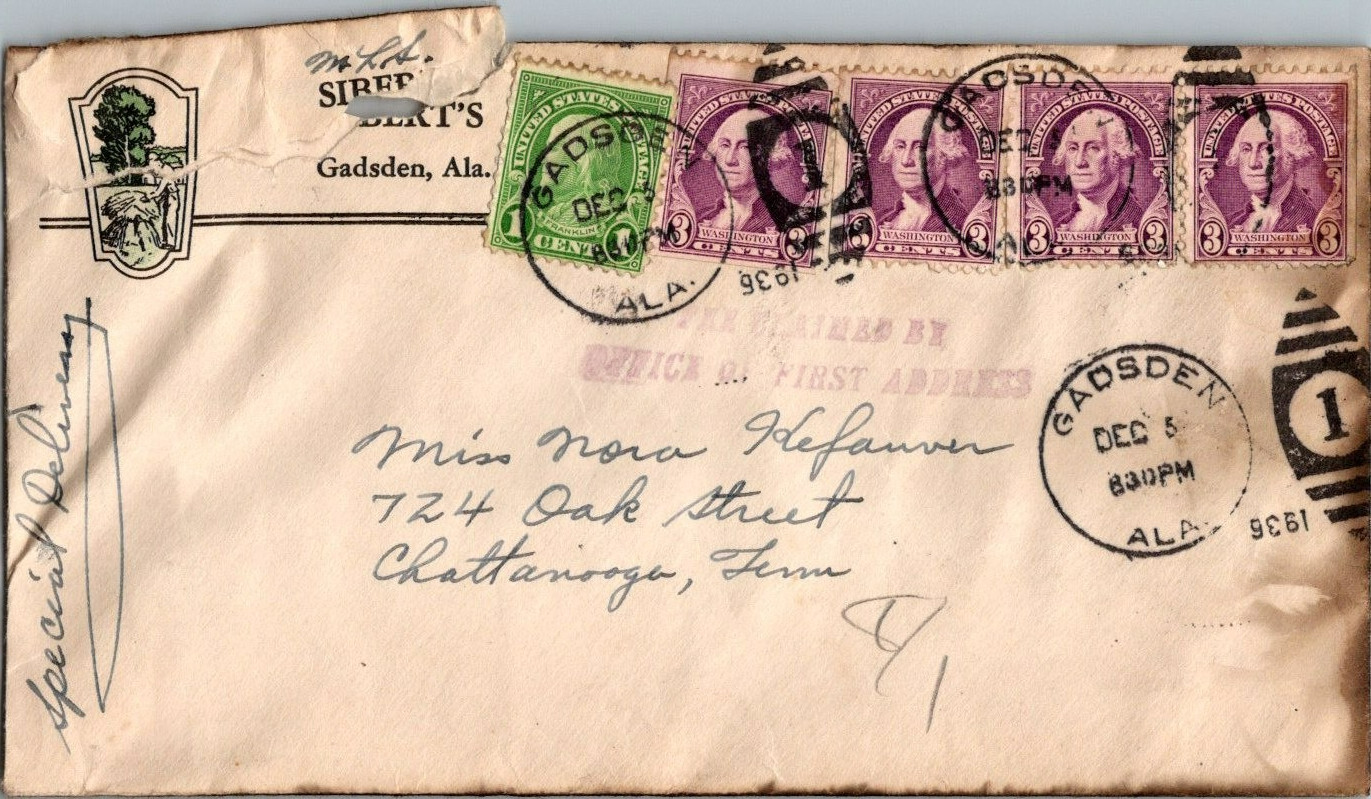 M L S.
SIBER
BERT'S
Gadsden, Ala.
UNITED STATES POSTAGE
1 FRANKLIN 1
CENT
UNITED STATES POSTAGE
3 WASHINGTON 3
CENTS
UNITED STATES POSTAGE
3 WASHINGTON 3
CENTS
UNITED STATES POSTAGE
3 WASHINGTON 3
CENTS
UNITED STATES POSTAGE
3 WASHINGTON 3
CENTS
GADSDEN
DEC 5
830PM
ALA.
1936
1
GADSDEN
DEC 5
830PM
FEE CLAIMED BY
OFFICE OF FIRST ADDRESS
GADSDEN
DEC 5
830PM
ALA.
1936
1
Special Delivery
Miss Nora Kefauver
724 Oak Street
Chattanooga, Tenn